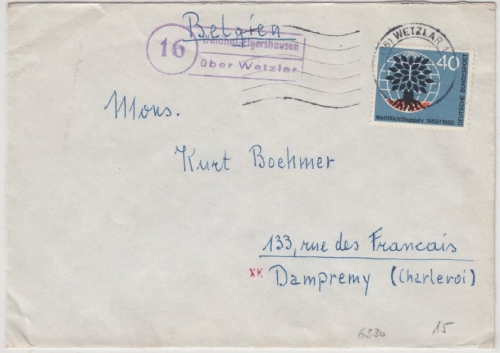 Belgien
16
Elgershausen
über Wetzlar
WETZLAR 1
40
DEUTSCHE BUNDESPOST
Weltflüchtlingsjahr 1959/1960
Mons.
Kurt Boehmer
133, rue des Francais
xx Dampremy (Charleroi)
6530 15